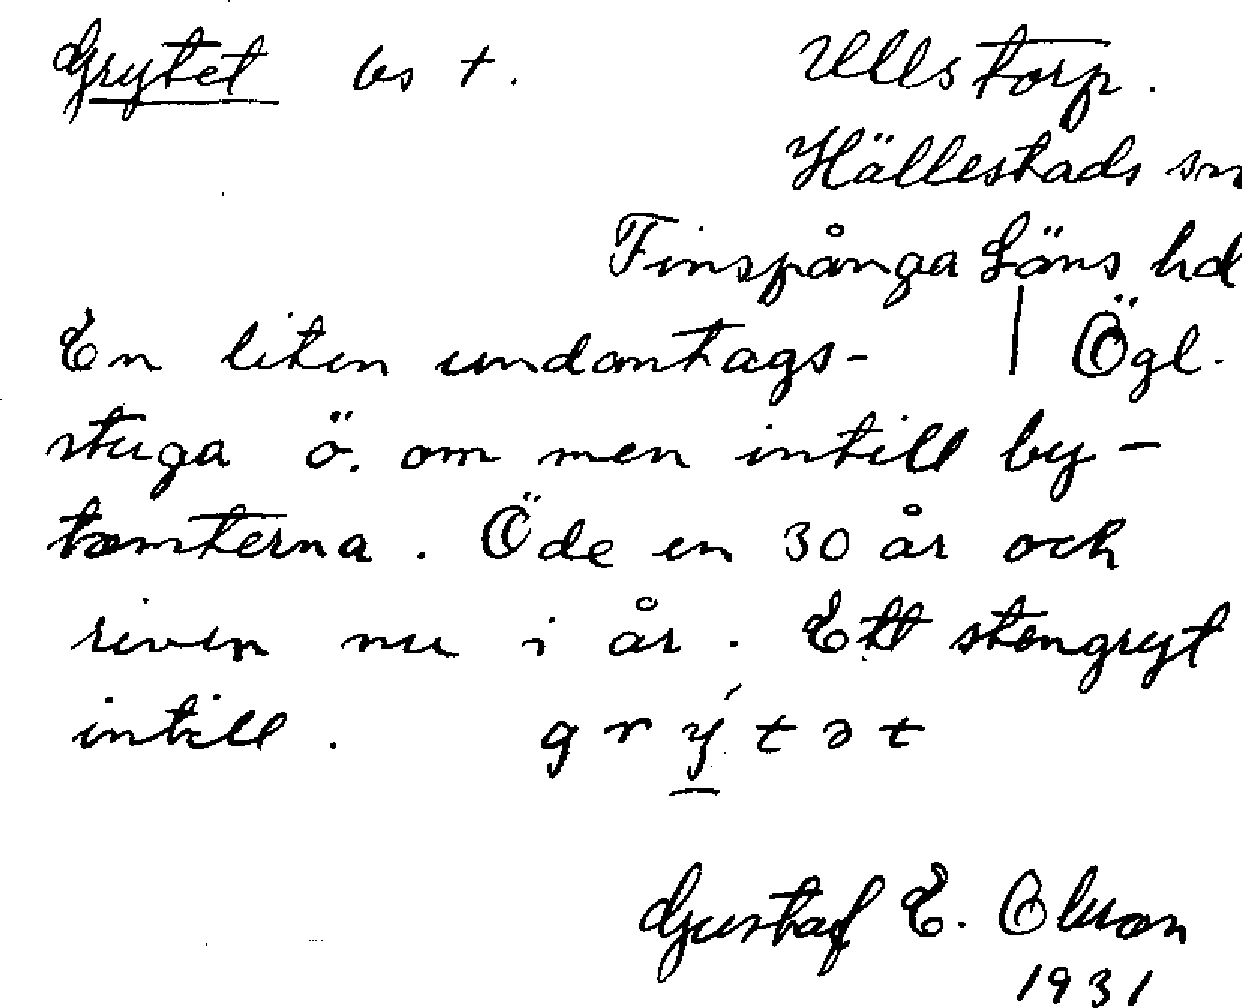 Grytet bs t. Ullstorp.
Hällestads sn
Finspånga Läns hd
En liten undantags- | Ögl.
stuga ö. om men intill by-
tomterna. Öde en 30 år och
riven nu i år. Ett stengryt
intill. grýtət
Gustaf E. Olson
1931